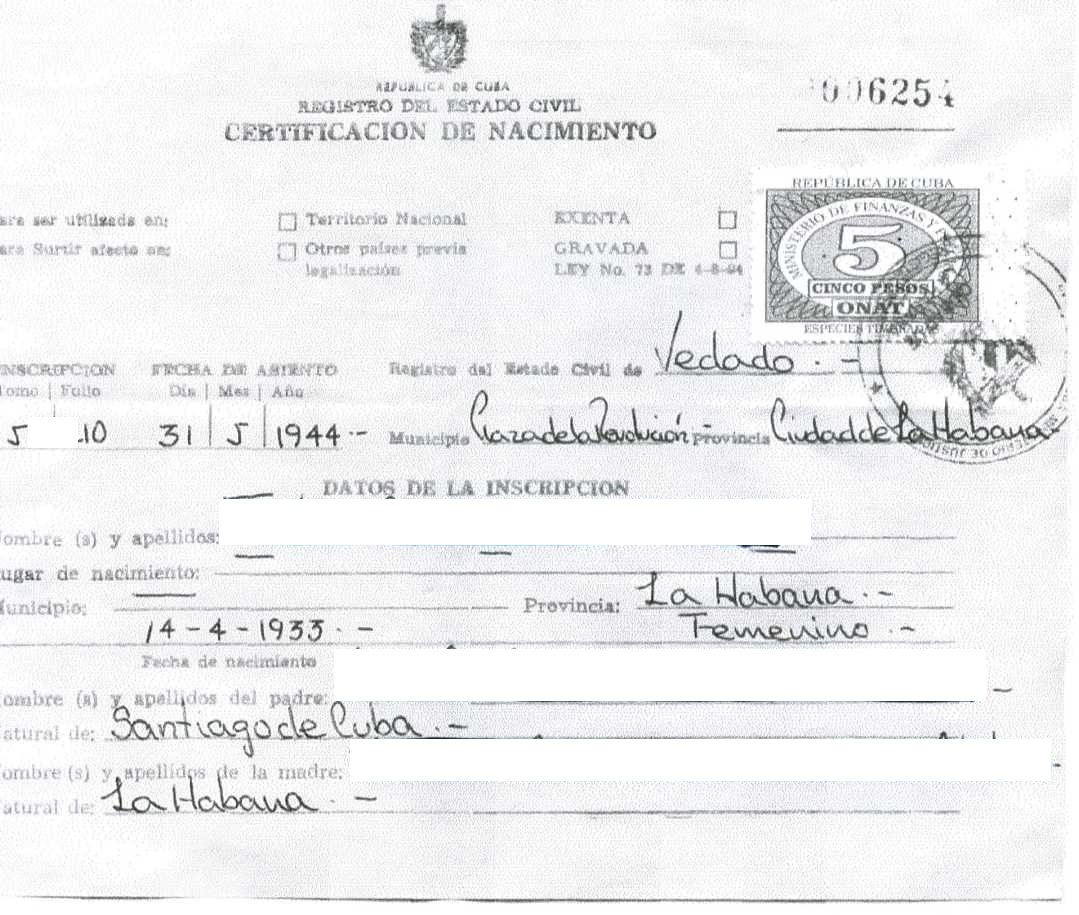 REPUBLICA DE CUBA
REGISTRO DEL ESTADO CIVIL
CERTIFICACION DE NACIMIENTO
006254
REPÚBLICA DE CUBA
MINISTERIO DE FINANZAS Y
5
CINCO PESOS
ONAT
ESPECIES TIMBRADAS
ara ser utilizada en: Territorio Nacional EXENTA
ara Surtir efecto en: Otros países previa GRAVADA
legalización LEY No. 73 DE 4-8-94
INSCRIPCION FECHA DE ASIENTO Registro del Estado Civil de Vedado.-
Tomo | Folio Día | Mes | Año
5 10 31 5 1944.- Municipio Plaza de la Revolución Provincia Ciudad de La Habana.
DATOS DE LA INSCRIPCION
ombre (s) y apellidos:
ugar de nacimiento:
Municipio: Provincia: La Habana.-
14-4-1933.- Femenino.-
Fecha de nacimiento
ombre (s) y apellidos del padre:
atural de: Santiago de Cuba.-
ombre (s) y apellidos de la madre:
atural de: La Habana.-